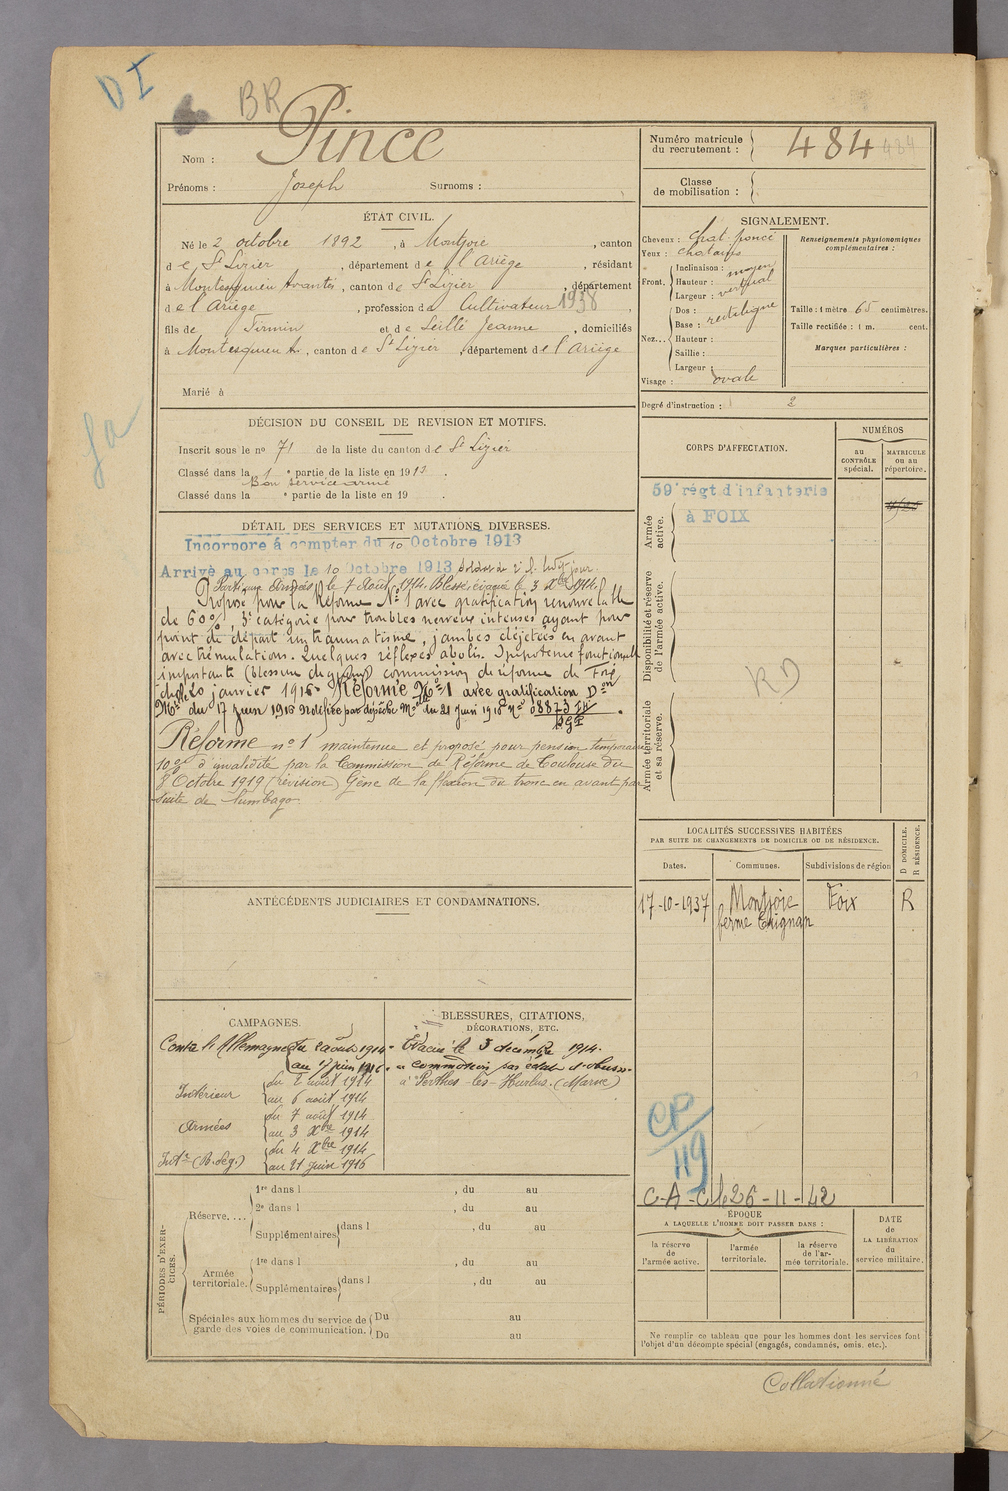 DI
BR
Nom : Pince
Prénoms : Joseph Surnoms :
Numéro matricule du recrutement : 484 484
Classe de mobilisation :
ÉTAT CIVIL.
Né le 2 octobre 1892, à Montjoie, canton
de St Lizier, département de l'Ariège, résidant
à Montesquieu Avantès, canton de St Lizier, département
de l'Ariège, profession de Cultivateur 1938,
fils de Firmin et de Seillé Jeanne, domiciliés
à Montesquieu A., canton de St Lizier, département de l'Ariège
Marié à
SIGNALEMENT.
Cheveux : chat. foncé
Yeux : chatains
Front. Inclinaison : moyen
Hauteur : vertical
Largeur :
Nez... Dos : rectiligne
Base :
Hauteur :
Saillie :
Largeur :
Visage : ovale
Renseignements physionomiques complémentaires :
Taille : 1 mètre 65 centimètres.
Taille rectifiée : 1 m. cent.
Marques particulières :
Degré d'instruction : 2
DÉCISION DU CONSEIL DE REVISION ET MOTIFS.
Inscrit sous le no 71 de la liste du canton de St Lizier
Classé dans la 1e partie de la liste en 1913.
Bon service armé
Classé dans la e partie de la liste en 19 .
CORPS D'AFFECTATION.
NUMÉROS
au CONTRÔLE spécial.
MATRICULE ou au répertoire.
Armée active.
59e régt d'infanterie
à FOIX
Disponibilité et réserve de l'armée active.
RD
Armée territoriale et sa réserve.
DÉTAIL DES SERVICES ET MUTATIONS DIVERSES.
Incorporé à compter du 10 Octobre 1913
Arrivé au corps le 10 Octobre 1913 soldat de 2e cl. ledit jour.
Parti aux Armées le 7 Août 1914. Blessé évacué le 3 Xbre 1914
Proposé pour la Réforme No 1 avec gratification renouvelable
de 60%, 5e catégorie pour troubles nerveux intenses ayant pour
point de départ un traumatisme, jambes déjetées en avant
avec trémulations. Quelques réflexes abolis. Impotence fonctionnelle
importante (blessure de guerre) commission de réforme de Foix
du 20 janvier 1916. Réformé No 1 avec gratification Don
Mlle du 17 Juin 1916 notifiée par dépêche Mlle du 21 Juin 1916 No
Réforme no 1 maintenue et proposé pour pension temporaire
10% d'invalidité par la Commission de Réforme de Toulouse du
8 Octobre 1919 (révision) Gêne de la flexion du tronc en avant par
suite de lumbago.
LOCALITÉS SUCCESSIVES HABITÉES
PAR SUITE DE CHANGEMENTS DE DOMICILE OU DE RÉSIDENCE.
Dates. Communes. Subdivisions de région D DOMICILE. R RÉSIDENCE.
17-10-1937 Montjoie Foix R
ferme
ANTÉCÉDENTS JUDICIAIRES ET CONDAMNATIONS.
CAMPAGNES.
Contre l'Allemagne du 2 août 1914
au 17 juin 1916
Intérieur du 2 août 1914
au 6 août 1914
Armées du 7 août 1914
au 3 Xbre 1914
Intr (B. Seg.) du 4 Xbre 1914
au 21 juin 1916
BLESSURES, CITATIONS, DÉCORATIONS, ETC.
Evacué le 3 décembre 1914.
commotion par éclat d'obus
à Perthes-les-Hurlus. (Marne)
CP/119
C-A-C le 26-11-42
PÉRIODES D'EXERCICES.
Réserve....
1re dans l , du au
2e dans l , du au
Supplémentaires dans l , du au
Armée territoriale.
1re dans l , du au
Supplémentaires dans l , du au
Spéciales aux hommes du service de garde des voies de communication.
Du au
Du au
ÉPOQUE
A LAQUELLE L'HOMME DOIT PASSER DANS :
la réserve de l'armée active.
l'armée territoriale.
la réserve de l'armée territoriale.
DATE de LA LIBÉRATION du service militaire.
Ne remplir ce tableau que pour les hommes dont les services font
l'objet d'un décompte spécial (engagés, condamnés, omis, etc.).
Collationné